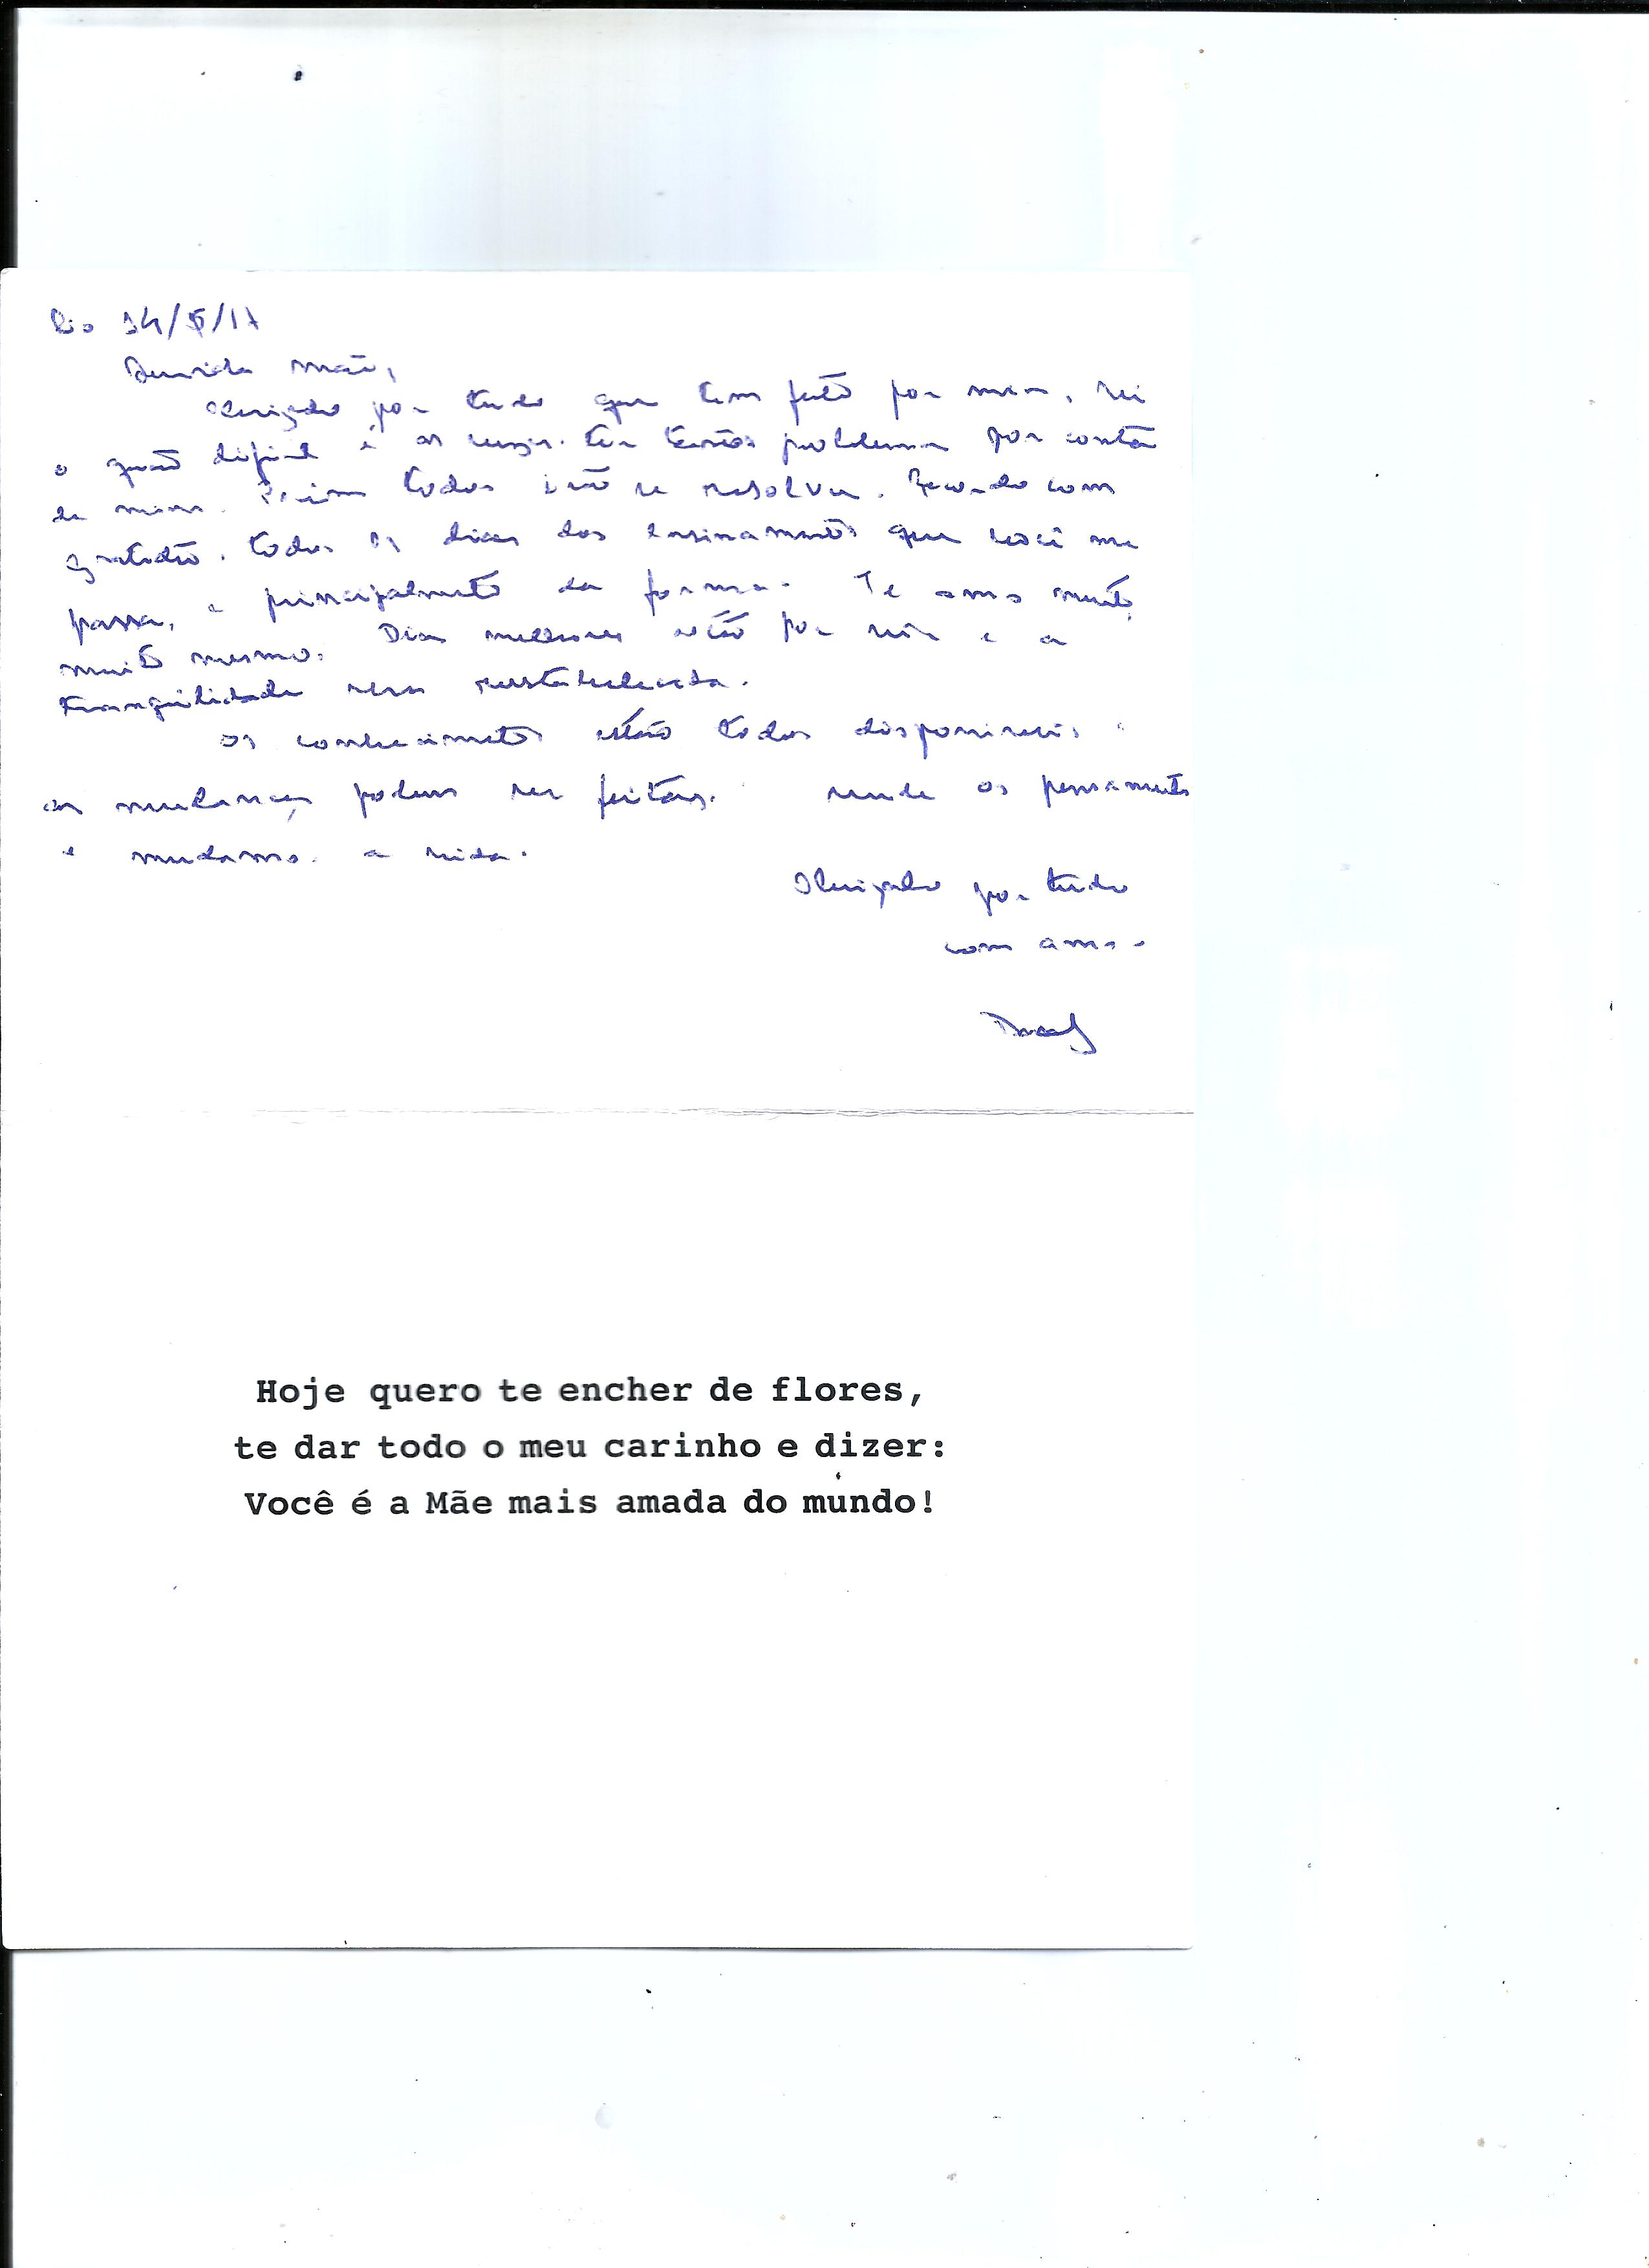 Rio 14/5/17
Querida mãe,
Obrigado por tudo que tem feito por mim, sei
o quão difícil é as vezes. ter tantos problemas por conta
de mim. Porém todos irão se resolver. Recordo com
gratidão. todos os dias dos ensinamentos que você me
passa, e principalmente da forma. Te amo muito,
muito mesmo. Dias melhores virão por vir e a
tranquilidade será reestabelecida.
Os conhecimentos estão todos disponíveis e
as mudanças podem ser feitas. mude os pensamentos
e mudamos a vida.
Obrigado por tudo
com amor
Hoje quero te encher de flores,
te dar todo o meu carinho e dizer:
Você é a Mãe mais amada do mundo!